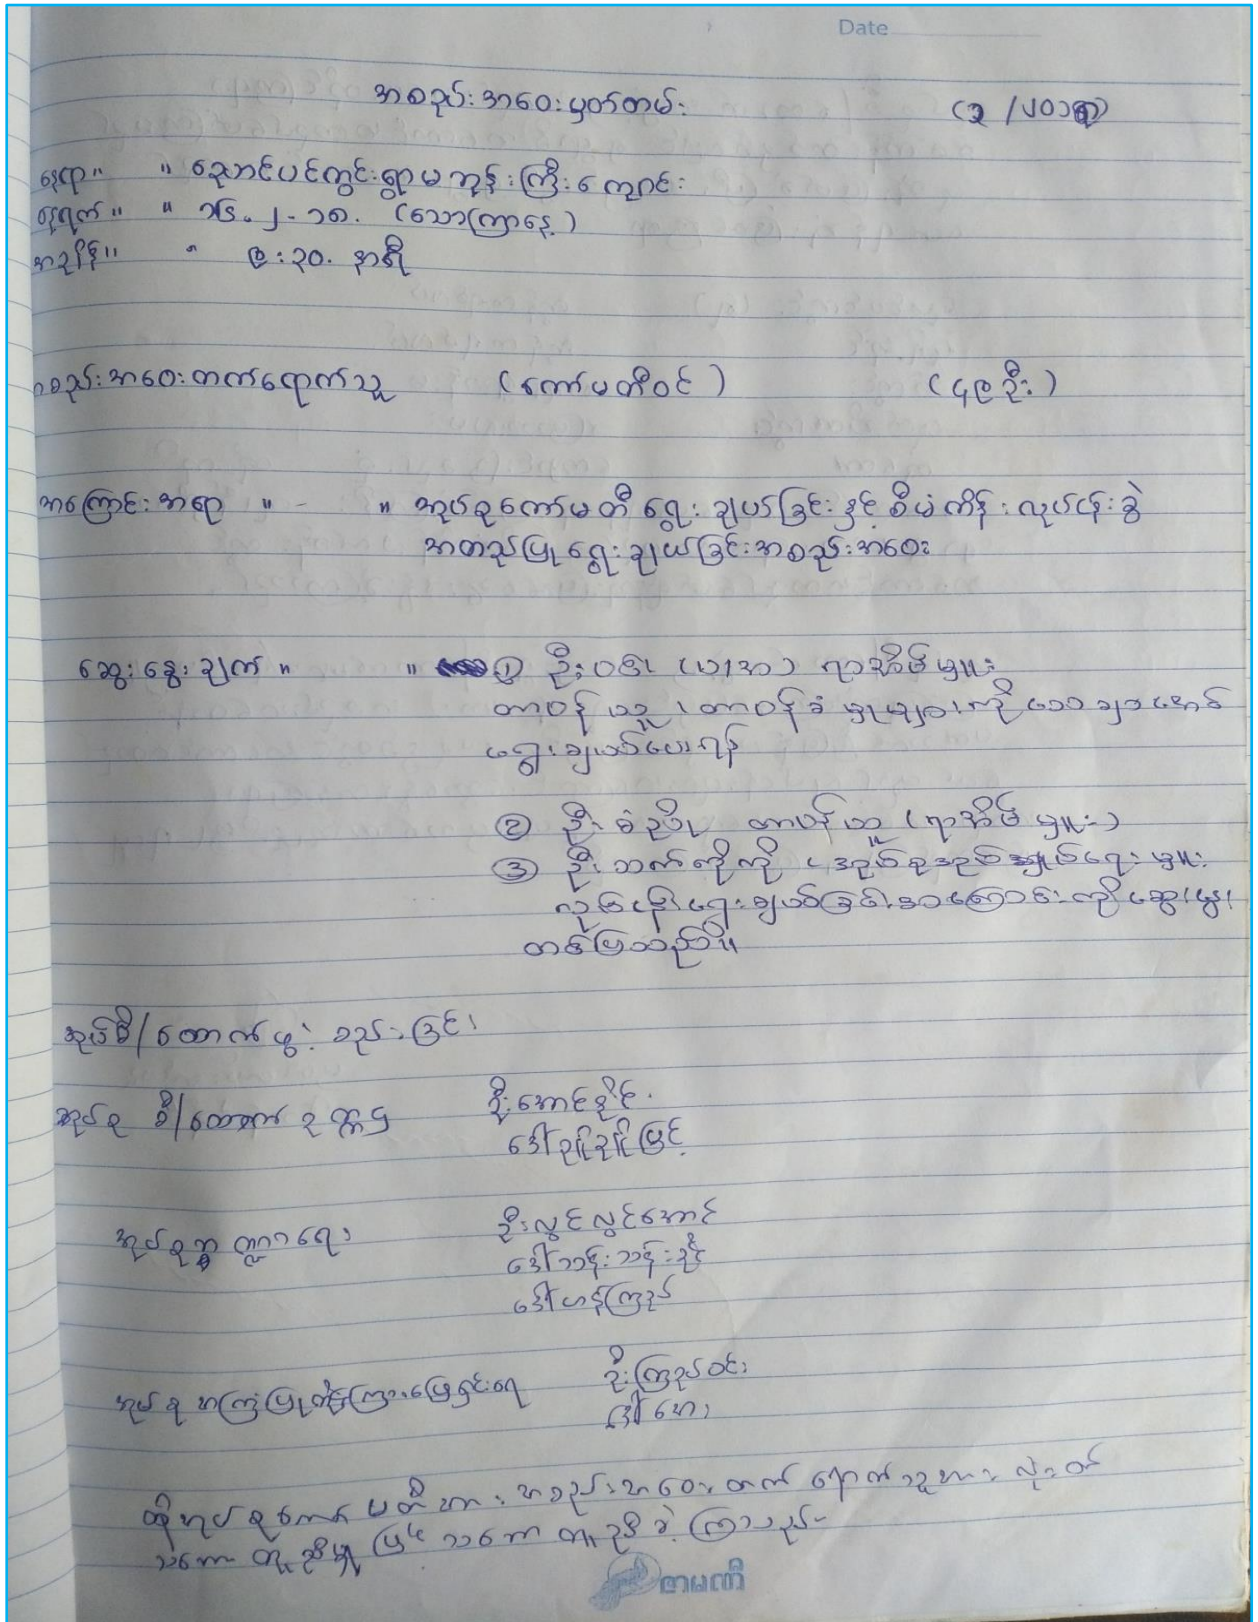 Date
အစည်းအဝေးမှတ်တမ်း (၃/၂၀၁၈)
နေရာ။ ။ ညောင်ပင်ကွင်းရွာမဘုန်းကြီးကျောင်း
နေ့ရက်။ ။ ၁၆.၂.၁၈. (သောကြာနေ့)
အချိန်။ ။ ၉:၃၀. နာရီ
အစည်းအဝေးတက်ရောက်သူ (ကော်မတီဝင်) (၄၉ဦး)
အကြောင်းအရာ ။ - ။ အုပ်စုကော်မတီ ရွေးချယ်ခြင်းနှင့် စီမံကိန်းလုပ်ငန်းခွဲ
အတည်ပြုရွေးချယ်ခြင်းအစည်းအဝေး
ဆွေးနွေးချက် ။ ။ ① ဦး (ရာအိမ်မှူး
တာဝန်ယူ၊ တာဝန်ခံမှုများကို သေချာအောင်
ရွေးချယ်ပေးရန်
② ဦးစံညို တာဝန်ယူ (ရာအိမ်မှူး)
③ ဦးသက်ကိုကို အုပ်စုအုပ်ချုပ်ရေးမှူး
လုပ်ငန်းရွေးချယ်ခြင်းအကြောင်းကို ဆွေးနွေး
တင်ပြသည်။
အုပ်စီ/ထောက်ဖွဲ့စည်းခြင်း
အုပ်စု စီ/ထောက် ဥက္ကဋ္ဌ ဦးအောင်နိုင်
ဒေါ်ချိုချိုမြင့်
အုပ်စုဘဏ္ဍာရေး ဦးလွင်လွင်အောင်
ဒေါ်သန်းသန်းနွဲ့
ဒေါ်ဟန်ကြည်
အုပ်စု အကြံပြုတိုင်ကြားဖြေရှင်းရေး ဦးကြည်ဝင်း
ဒေါ်အေး
ထိုအုပ်စုကော်မတီအား အစည်းအဝေးတက်ရောက်သူအားလုံးတို့
သဘောတူညီမှုဖြင့် သဘောတူညီခဲ့ကြသည်။
တမဏီ